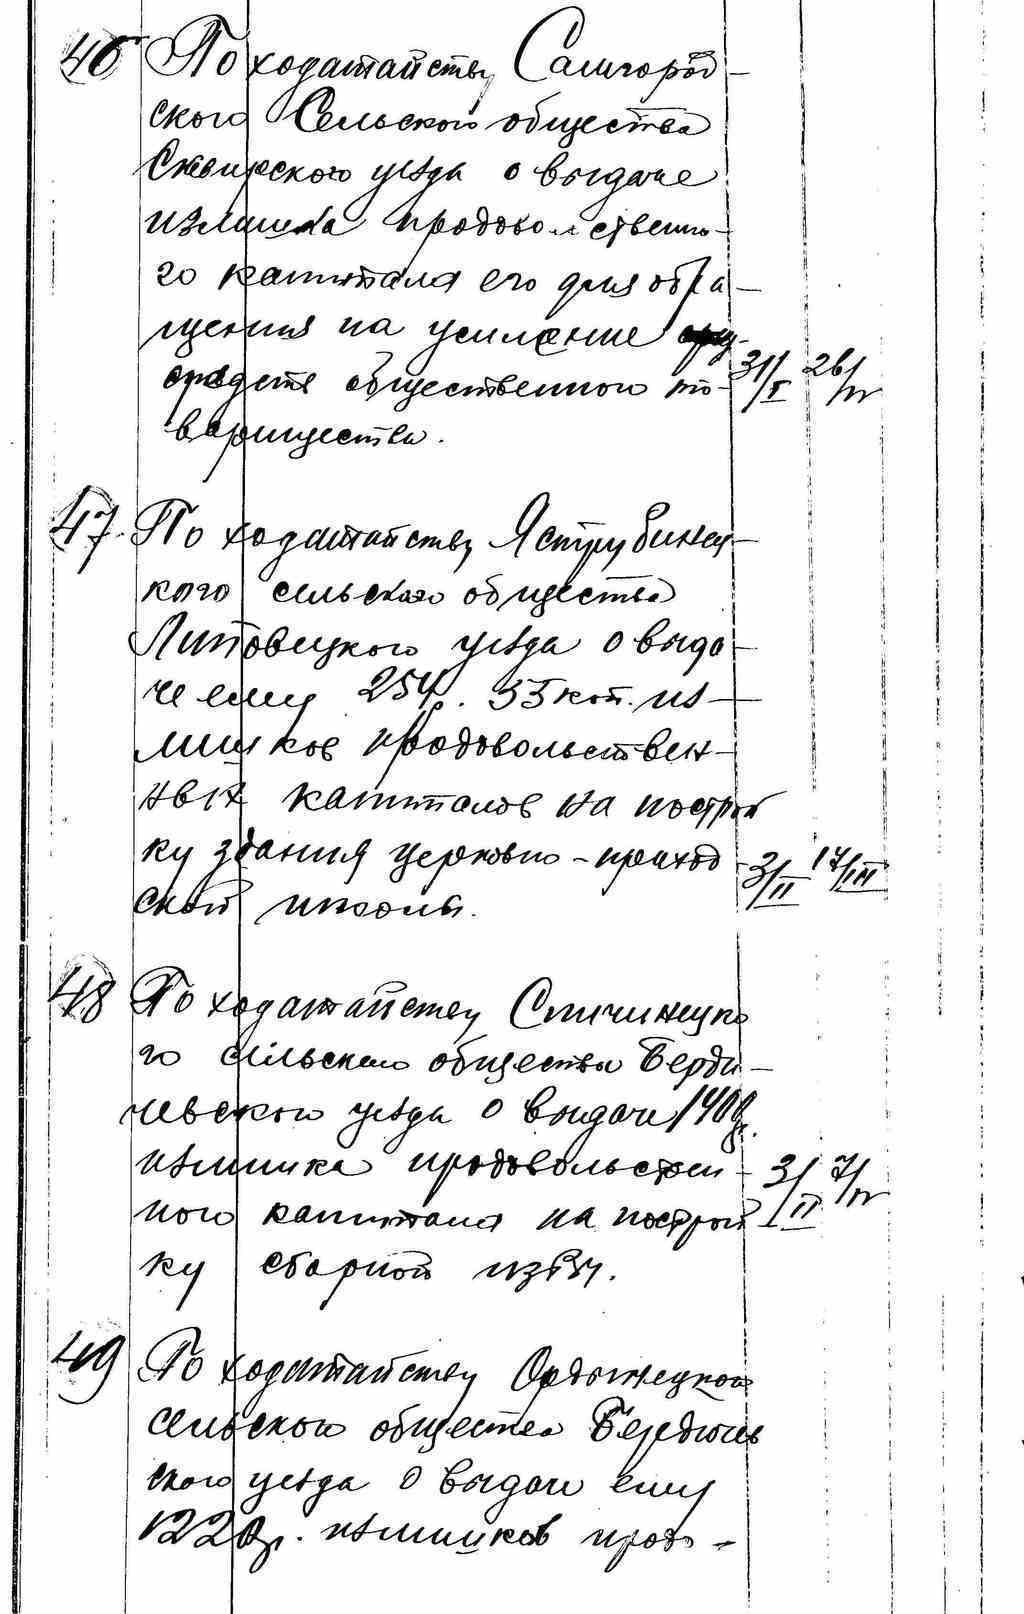 46 По ходатайству Самгород-
ского Сельского общества
Сквирского уезда о выдаче
излишка продовольственно-
го капитала его для обра-
щения на усиление
средств общественного то- 31/I 26/IV
варищества.
47. По ходатайству Яструбинец-
кого сельского общества
Липовецкого уезда о выда-
че ему 254р. 55 коп. из-
лишков продовольствен-
ных капиталов на построй
ку здания церковно-приход 3/II 17/III
ской школы.
48 По ходатайству Сличинецко
го сельского общества Берди-
чевского уезда о выдаче 1400р.
излишка продовольствен- 3/II 7/IV
ного капитала на построй
ку сборной избы.
49 По ходатайству Ордынецкого
сельского общества Бердичев
ского уезда о выдаче ему
1220р. излишков продо-